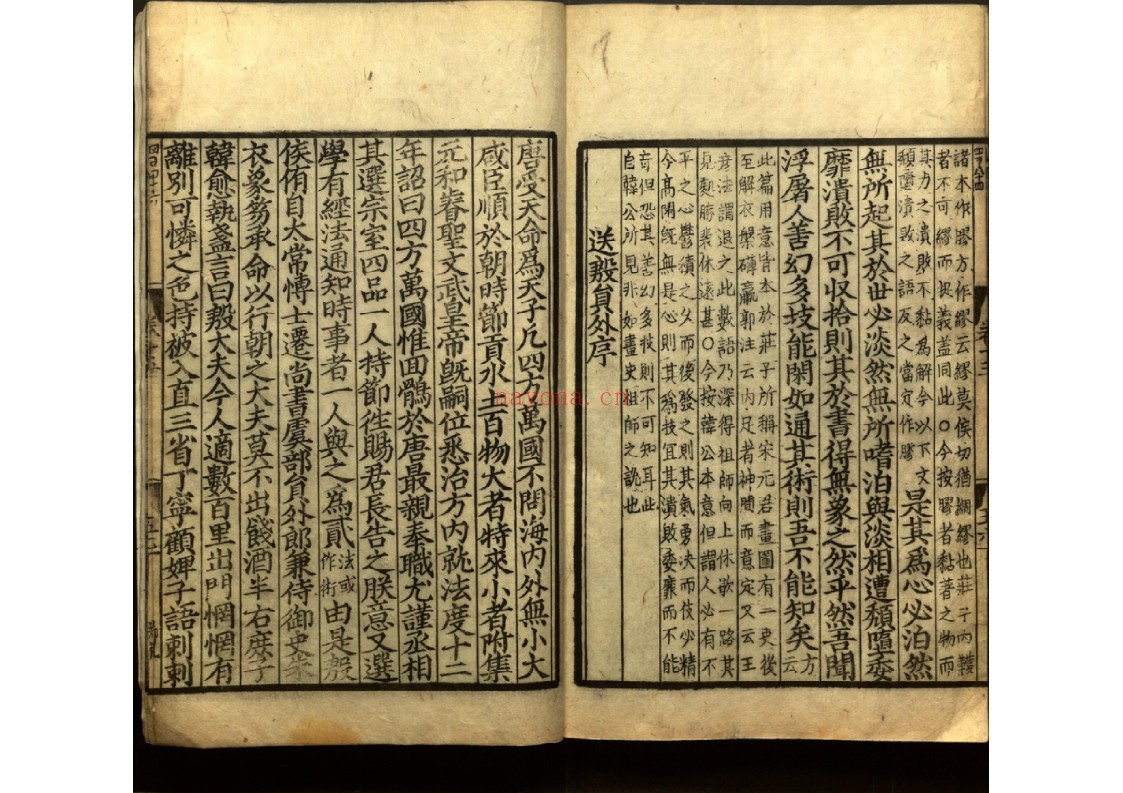 諸本作膠方作繆云繆莫侯切猶綢繆也莊子内韄
者不可繆而捉義蓋同此〇今按膠者黏著之物而
其力之潰敗不黏爲解今以下文
頹墮潰敗之語反之當定作膠
是其爲心必泊然
無所起其於世必淡然無所嗜泊與淡相遭頹墮委
靡潰敗不可収拾則其於書得無象之然乎然吾聞
浮屠人善幻多技能閑如通其術則吾不能知矣
方云
此篇用意皆本於莊子所稱宋元君畫圖有一史後
至解衣槃礴臝郭注云内足者神閒而意定又云王
彦法謂退之此數語乃深得祖師向上休歇一路其
見處勝裴休遠甚〇今按韓公本意但謂人必有不
平之心鬱積之久而後發之則其氣勇决而伎必精
今高閑既無是心則其爲技宜其潰敗委靡而不能
奇但恐其善幻多技則不可知耳此
自韓公所見非如畫史祖師之説也
送殷員外序
唐受天命爲天子凡四方萬國不問海内外無小大
咸臣順於朝時節貢水土百物大者特來小者附集
元和睿聖文武皇帝旣嗣位悉治方内就法度十二
年詔曰四方萬國惟回鶻於唐最親奉職尤謹丞相
其選宗室四品一人持節徃賜君長告之朕意又選
學有經法通知時事者一人與之爲貳
法或
作術
由是殷
侯侑自太常博士遷尚書虞部員外郎兼侍御史朱
衣象笏承命以行朝之大夫莫不出餞酒半右庶子
韓愈執盞言曰殷大夫今人適數百里出門惘惘有
離別可憐之色持被入直三省丁寧顧婢子語剌剌
nayona.cn